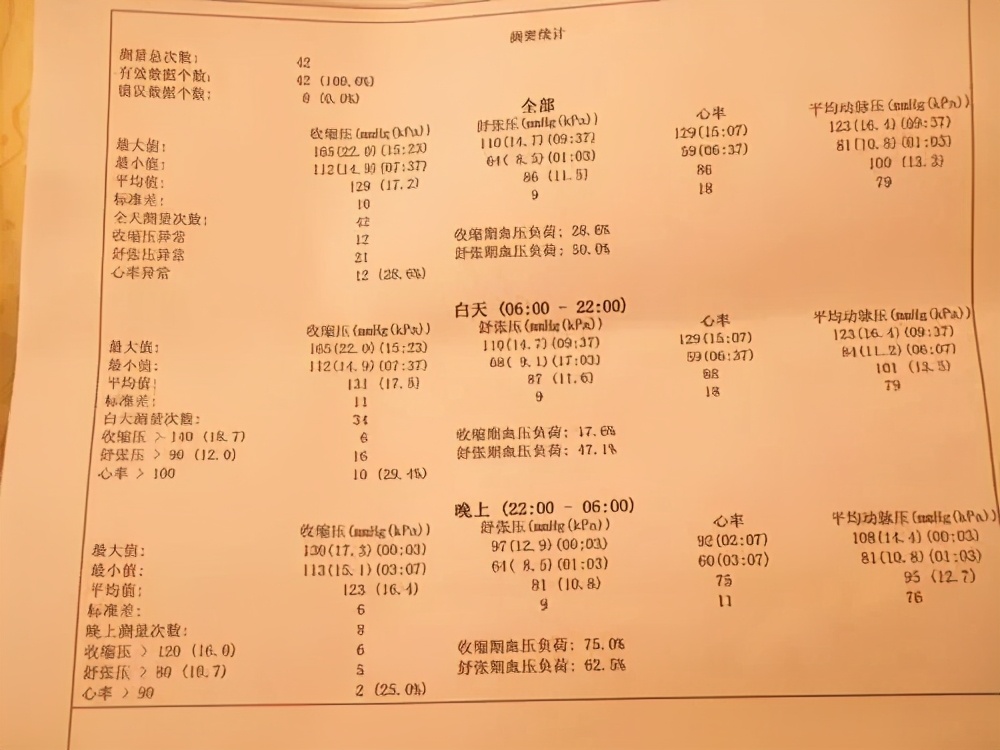 摘要统计
测量总次数: 42
有效数据个数: 42 (100.0%)
错误数据个数: 0 (0.0%)
全部
收缩压(mmHg(kPa)) 舒张压(mmHg(kPa)) 心率 平均动脉压(mmHg(kPa))
最大值: 165(22.0)(15:23) 110(14.7)(09:37) 129(15:07) 123(16.4)(09:37)
最小值: 112(14.9)(07:37) 64( 8.5)(01:03) 59(06:37) 81(10.8)(01:03)
平均值: 129 (17.2) 86 (11.5) 86 100 (13.3)
标准差: 10 9 18 79
全天测量次数: 42
收缩压异常 12 收缩期血压负荷: 28.6%
舒张压异常 21 舒张期血压负荷: 50.0%
心率异常 12 (28.6%)
白天 (06:00 - 22:00)
收缩压(mmHg(kPa)) 舒张压(mmHg(kPa)) 心率 平均动脉压(mmHg(kPa))
最大值: 165(22.0)(15:23) 110(14.7)(09:37) 129(15:07) 123(16.4)(09:37)
最小值: 112(14.9)(07:37) 68( 9.1)(17:03) 59(06:37) 84(11.2)(06:07)
平均值: 131 (17.5) 87 (11.6) 88 101 (13.5)
标准差: 11 9 18 79
白天测量次数: 34
收缩压 > 140 (18.7) 6 收缩期血压负荷: 17.6%
舒张压 > 90 (12.0) 16 舒张期血压负荷: 47.1%
心率 > 100 10 (29.4%)
晚上 (22:00 - 06:00)
收缩压(mmHg(kPa)) 舒张压(mmHg(kPa)) 心率 平均动脉压(mmHg(kPa))
最大值: 130(17.3)(00:03) 97(12.9)(00:03) 92(02:07) 108(14.4)(00:03)
最小值: 113(15.1)(03:07) 64( 8.5)(01:03) 60(03:07) 81(10.8)(01:03)
平均值: 123 (16.4) 81 (10.8) 75 95 (12.7)
标准差: 6 9 11 76
晚上测量次数: 8
收缩压 > 120 (16.0) 6 收缩期血压负荷: 75.0%
舒张压 > 80 (10.7) 5 舒张期血压负荷: 62.5%
心率 > 90 2 (25.0%)